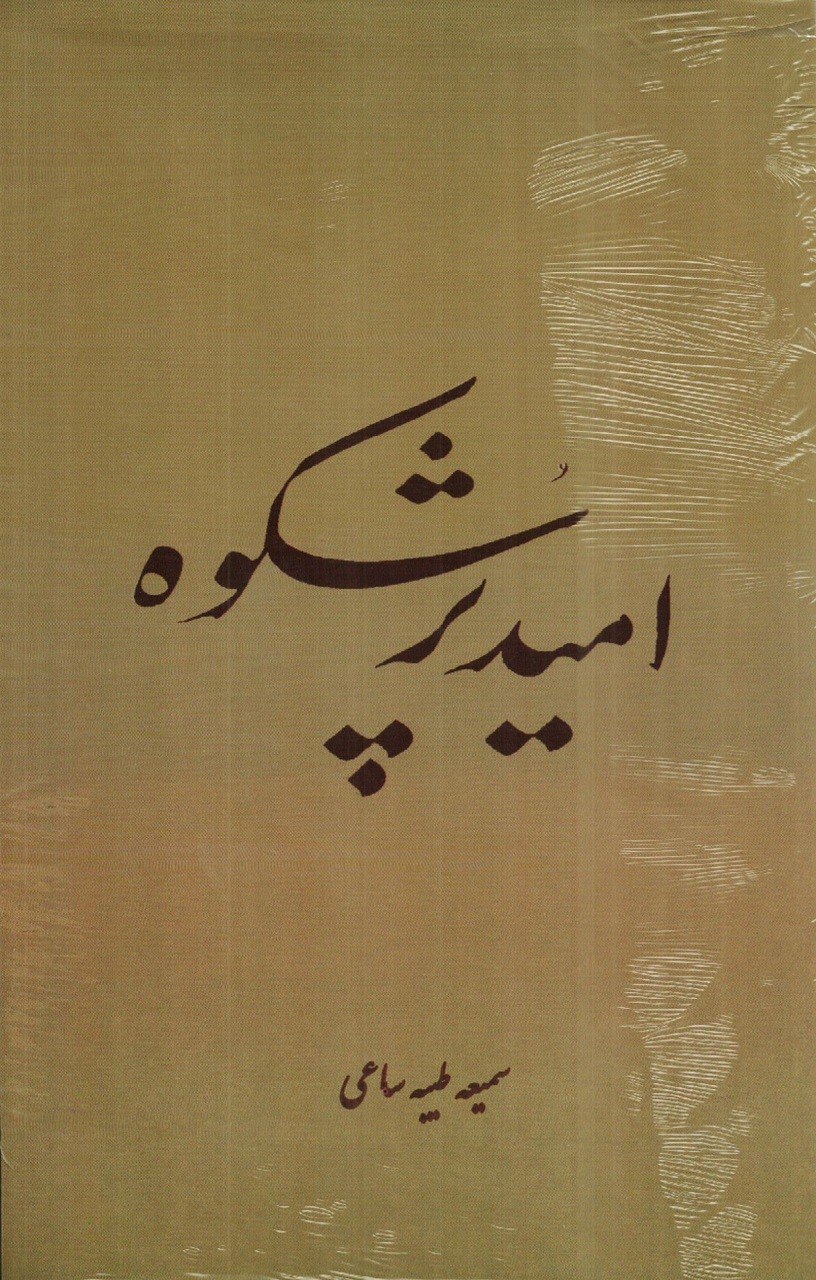 امید پرشُکوه
سمیعه طیبه ساعی